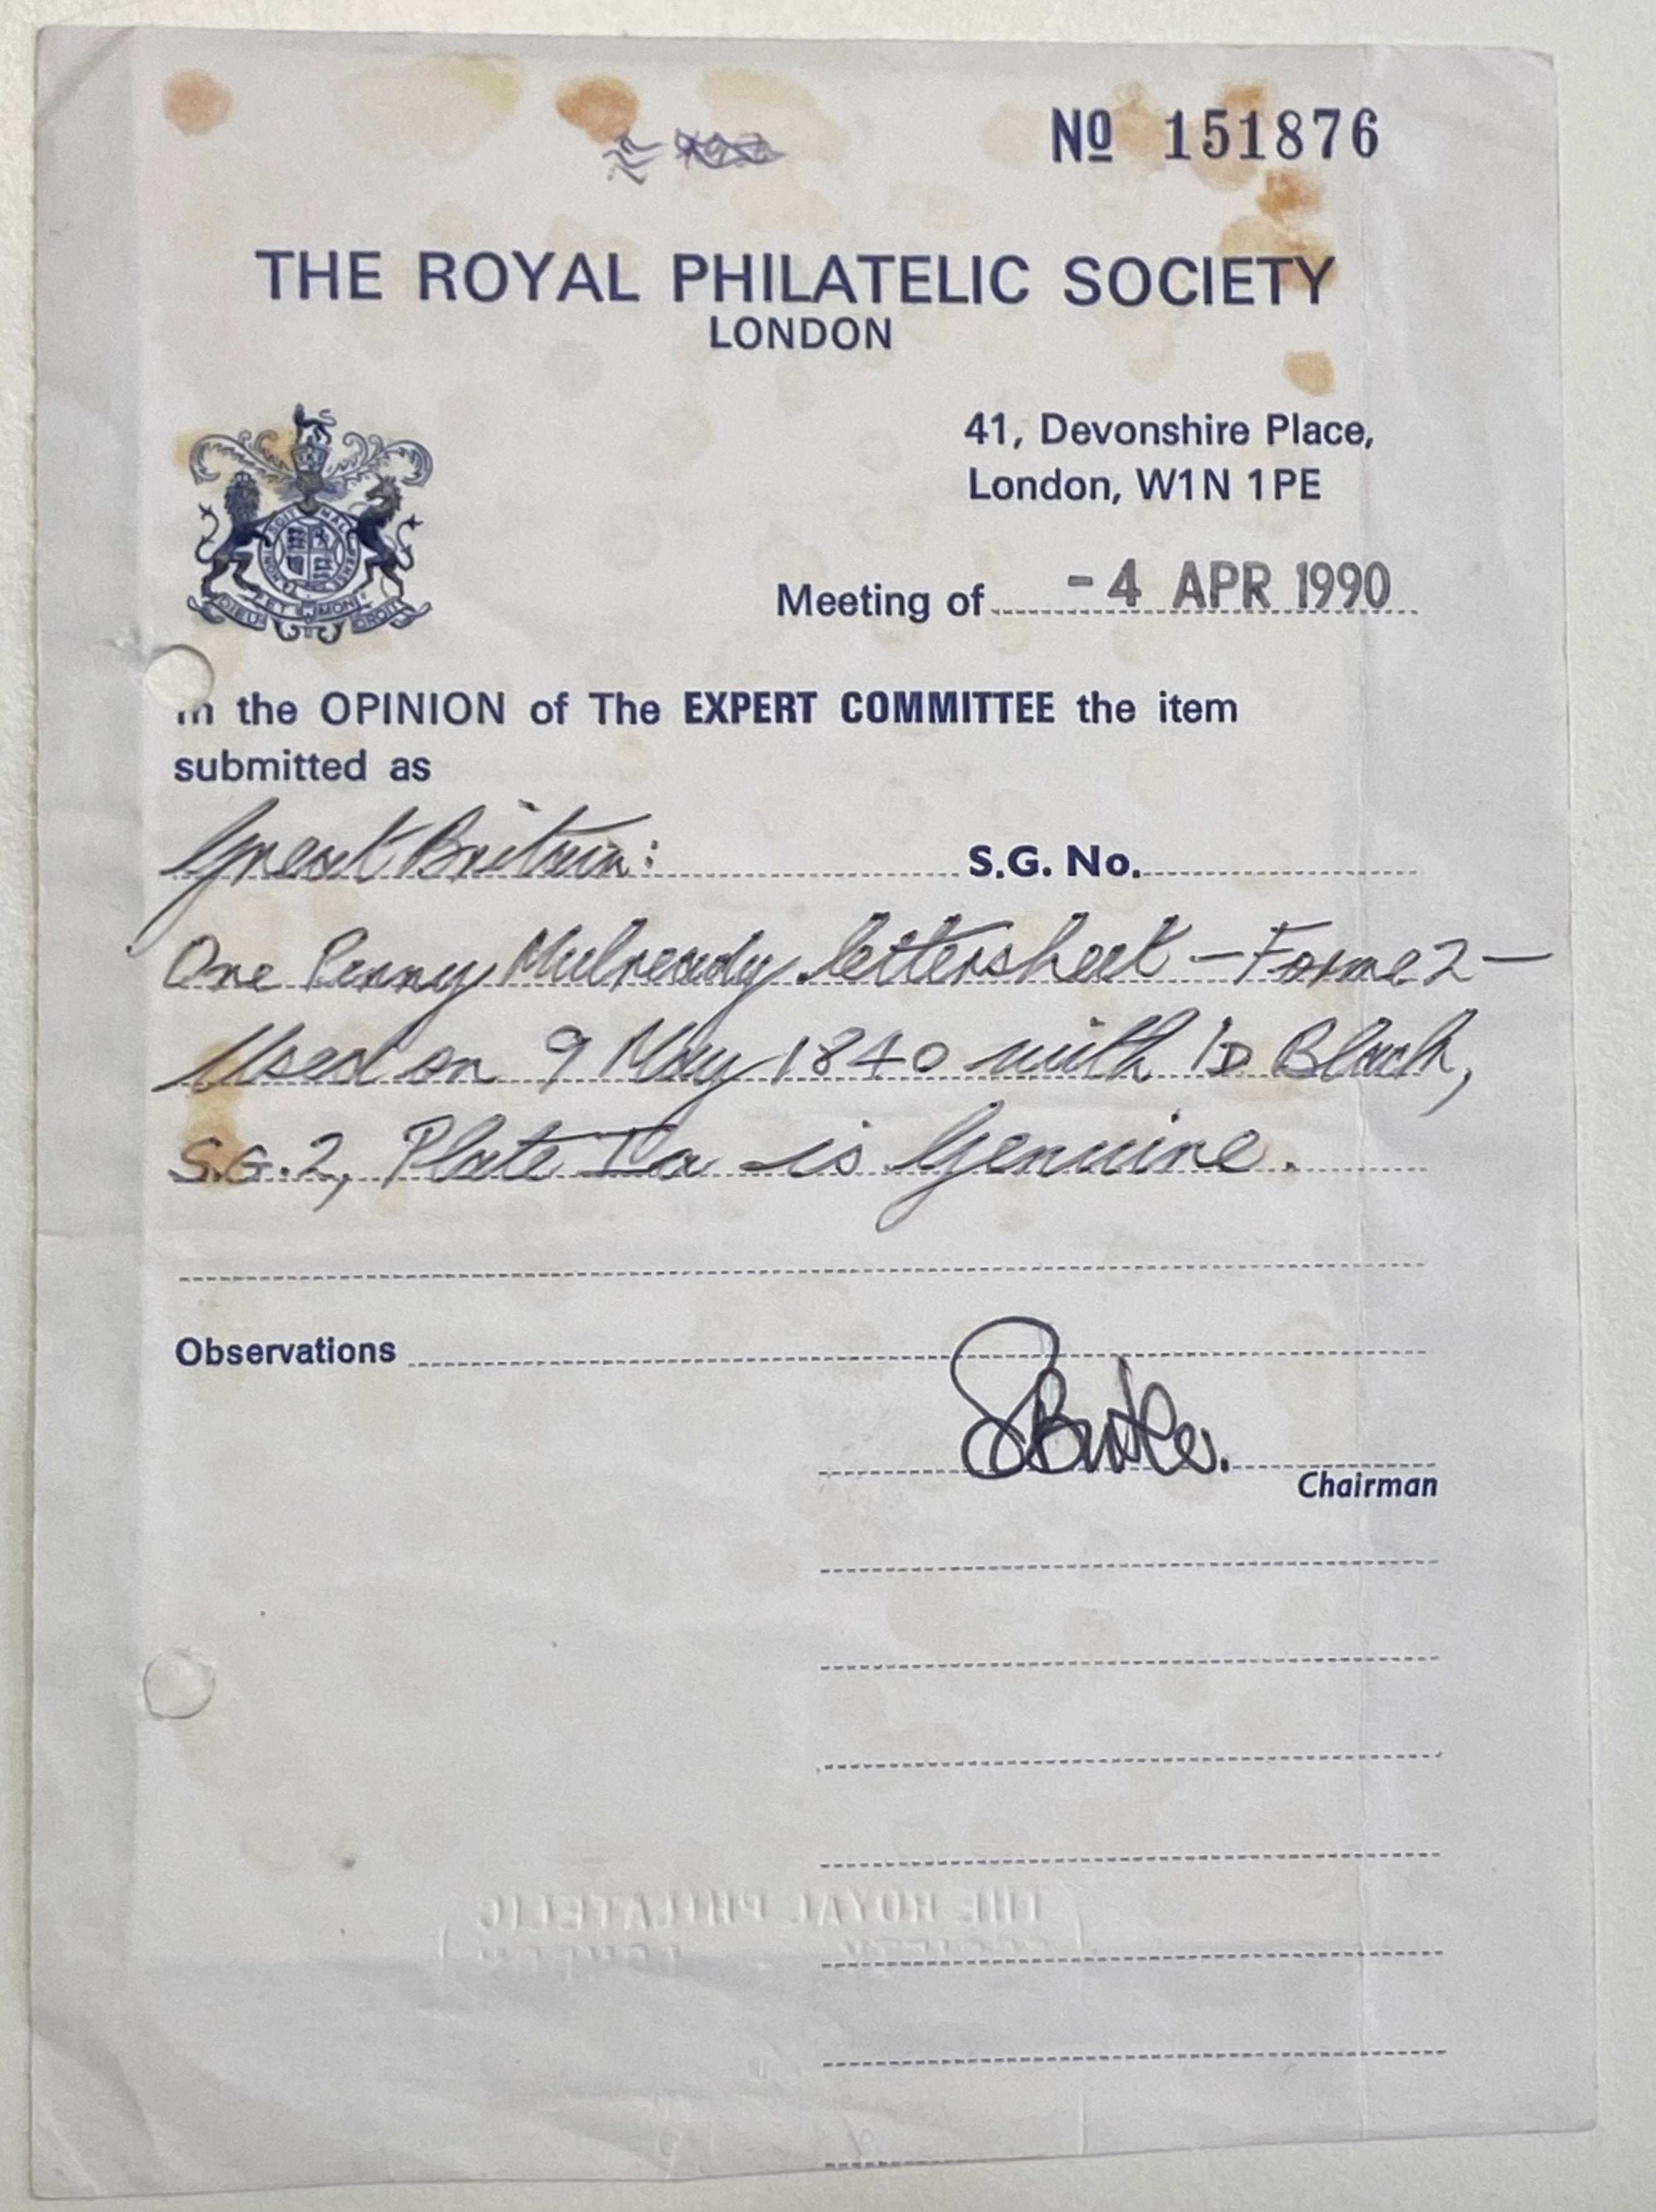 Nº 151876
THE ROYAL PHILATELIC SOCIETY
LONDON
41, Devonshire Place,
London, W1N 1PE
DIEU ET MON DROIT
Meeting of -4 APR 1990
In the OPINION of The EXPERT COMMITTEE the item
submitted as
Great Britain: S.G. No.
One Penny Mulready lettersheet - Forme 2 -
Used on 9 May 1840 with 1D Black,
S.G.2, Plate Ia is Genuine.
Observations
SButler.
Chairman
THE ROYAL PHILATELIC
SOCIETY LONDON